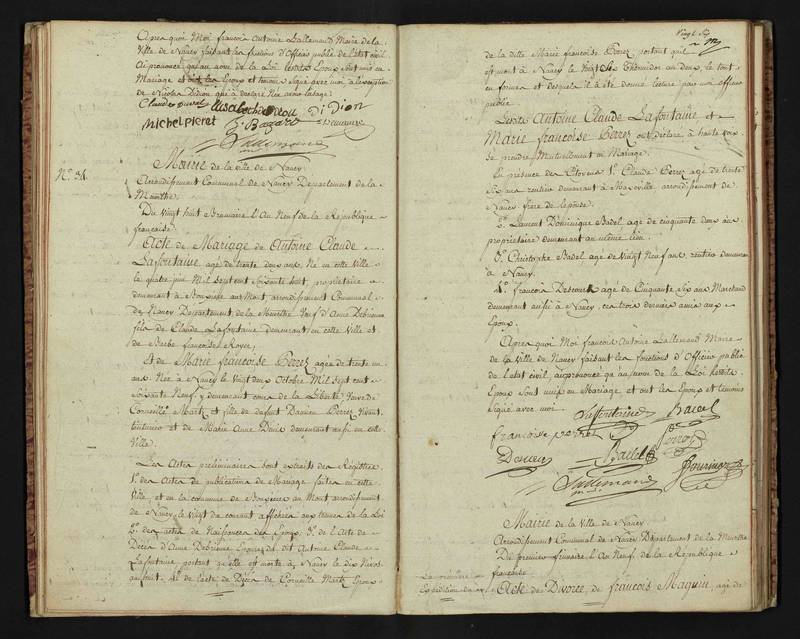 Après quoi Moi françois Antoine Lallemand Maire de la
Ville de Nancy faisant les fonctions d'Officier public de l'état civil
ai prononcé qu'au nom de la Loi lesdits Epoux sont unis en
Mariage et ont les Epoux et temoins signé avec moi, à l'exception
de Nicolas Didion qui a déclaré
Claude Durvel Didion
Michel pieret Bazard
Lallemand
N.° 31.
Mairie de la ville de Nancy
Arrondissement Communal de Nancy Departement de la
Meurthe
Du vingt huit Brumaire l'An Neuf de la République
française.
Acte de Mariage de Antoine Claude
Lafontaine agé de trente deux ans, Né en cette Ville
le quatre juin Mil sept cent soixante huit, proprietaire
demeurant à Bouxiere aux Mont arrondissement Communal
de Nancy Departement de la Meurthe Veuf d'Anne Debrienne
fils de Claude Lafontaine demeurant en cette Ville et
de Barbe françoise Royer,
Et de Marie françoise Perrez agée de trente un
ans Née à Nancy le vingt deux Octobre Mil sept cent
soixante Neuf, y demeurant cour de la Liberté Veuve de
Corneille Martz et fille de defunt Damien Perrez Vivant
teinturier et de Marie Anne Denis demeurant aussi en cette
Ville.
Les Actes preliminaires sont extraits des Régistres
1.° des Actes de publications de Mariage faites en cette
Ville, et en la commune de Bouxieres au Mont arrondissement
de Nancy le vingt du courant affichés aux termes de la Loi
2.° des actes de Naissances des Epoux 3.° de l'Acte de
Décès d'Anne Debrienne Epouse du dit Antoine Claude
Lafontaine portant qu'elle est morte à Nancy le dix Nivos
an huit, 4.° de l'acte de Décès de Corneille Martz Epoux
Vingt Six
de la ditte Marie françoise Perez portant qu'il
est mort à Nancy le vingt Six Thermidor an deux, le tout
en forme et desquels il a été donné lecture par moi officier
public
Lesdits Antoine Claude Lafontaine et
Marie françoise Perrez ont déclaré à haute voix
se prendre Mutuellement en Mariage.
En présence des Citoyens 1.° Claude Perrez agé de trente
Six ans rentier demeurant à Maxeville arrondissement de
Nancy frere de l'épouse.
2.° Laurent Dominique Badel agé de cinquante deux ans
proprietaire demeurant au même lieu
3.° Christophe Badel agé de Vingt Neuf ans, rentier demeurant
à Nancy.
4.° François agé de Cinquante Six ans Marchand
demeurant aussi à Nancy, ces trois derniers amis aux
Epoux.
Après quoi Moi françois Antoine Lallemand Maire
de la Ville de Nancy faisant les fonctions d'Officier public
de l'état civil, ai prononcé qu'au nom de la Loi lesdits
Epoux sont unis en Mariage et ont les Epoux et temoins
Signé avec moi.
Lafontaine Badel
françoise perret
Badel
Lallemand
Mairie de la Ville de Nancy
Arrondissement Communal de Nancy, Département de la Meurthe
Du premier frimaire, l'An Neuf, de la République
française
Acte de Divorce, de françois Maquin, agé de